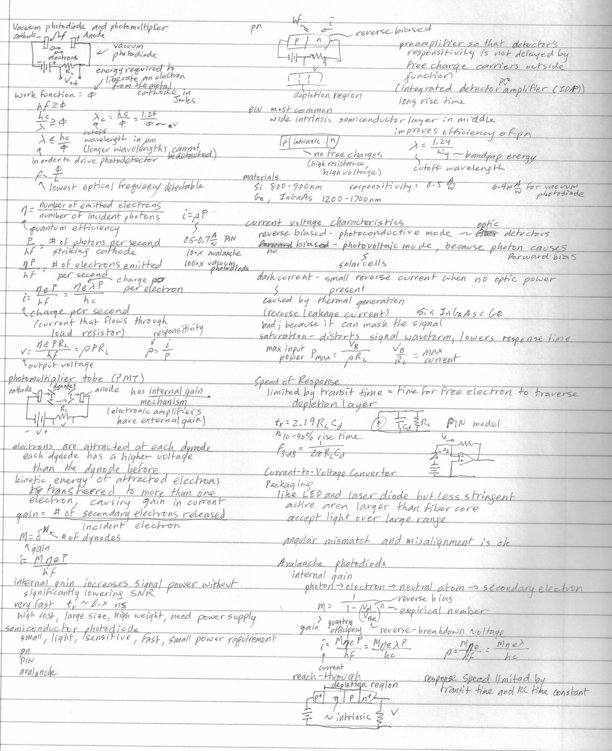 Vacuum photodiode and photomultiplier
cathode hf Anode
electrons
vacuum photodiode
RL
V out
energy required to
liberate an electron
from the metal
work function = Φ cathode in
Joules
hf ≥ Φ
hc/λ ≥ Φ λc = hc/Φ = 1.24/Φ ~ eV
λ ≤ hc/Φ cutoff
wavelength in µm
(longer wavelengths cannot
be detected)
in order to drive photodetector
f = Φ/h
lowest optical frequency detectable
η = number of emitted electrons / number of incident photons
i = ρP
quantum efficiency
P/hf = # of photons per second
striking cathode
0.5-0.7 A/W PIN
10-x avalanche
100-x vacuum photodiode
ηP/hf = # of electrons emitted
per second
charge per electron
i = ηeP/hf = ηeλP/hc
charge per second
(current that flows through
load resistor)
responsivity
v = ηePRL/hf = ρPRL ρ = i/P
output voltage
photomultiplier tube (PMT)
cathode dynodes anode
has internal gain
mechanism
(electronic amplifiers
have external gain)
RL
- V +
electrons are attracted at each dynode
each dynode has a higher voltage
than the dynode before
kinetic energy of attracted electrons
transferred to more than one
electron, causing gain in current
gain = # of secondary electrons released / incident electron
M = δ^N # of dynodes
gain
i = MηeP/hf
internal gain increases signal power without
significantly lowering SNR
very fast tr ~ 0.x ns
high cost, large size, high weight, need power supply
semiconductor photodiode
small, light, sensitive, fast, small power requirement
pn
PIN
avalanche
pn
hf i
reverse biased
p n
depletion region
preamplifier so that detector's
responsivity is not delayed by
free charge carriers outside
junction
pin
(integrated detector amplifier (IDA))
long rise time
PIN most common
wide intrinsic semiconductor layer in middle
improves efficiency of pn
p intrinsic n
no free charges
(high resistance,
high voltage)
λ = 1.24/Wg bandgap energy
cutoff wavelength
materials
Si 800-900nm responsivity = 0.5 A/W
for vacuum photodiode
Ge, InGaAs 1200-1700nm
current voltage characteristics
optic
reverse biased - photoconductive mode ~ detectors
no biased - photovoltaic mode, because photon causes
solar cells forward bias
dark current - small reverse current when no optic power
present
caused by thermal generation
(reverse leakage current) Si < InGaAs < Ge
bad, because it can mask the signal
saturation - distorts signal waveform, lowers response time
max input
power Pmax = VB/ρRL VB/RL = max
current
Speed of Response
limited by transit time = time for free electron to traverse
depletion layer
tr = 2.19 RL Cd
10-90% rise time
Cd RL
PIN model
f3-dB = 1/2πRLCd
Current-to-Voltage Converter
Packaging
like LED and laser diode but less stringent
active area larger than fiber core
accept light over large range
angular mismatch and misalignment is ok
Avalanche photodiode
internal gain
photon → electron → neutral atom → secondary electron
reverse bias
M = 1/1-(Vd/VBR)^n empirical number
gain
efficiency
reverse-breakdown voltage
i = MηeP/hf = MηeλP/hc ρ = Mηe/hf = Mηeλ/hc
current
reach-through
depletion region
p+ π p n+
V
~ intrinsic
response speed limited by
transit time and RC time constant